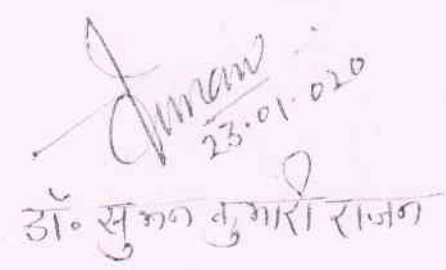 Suman
23.01.020
डॉ. सुमन कुमारी राजन